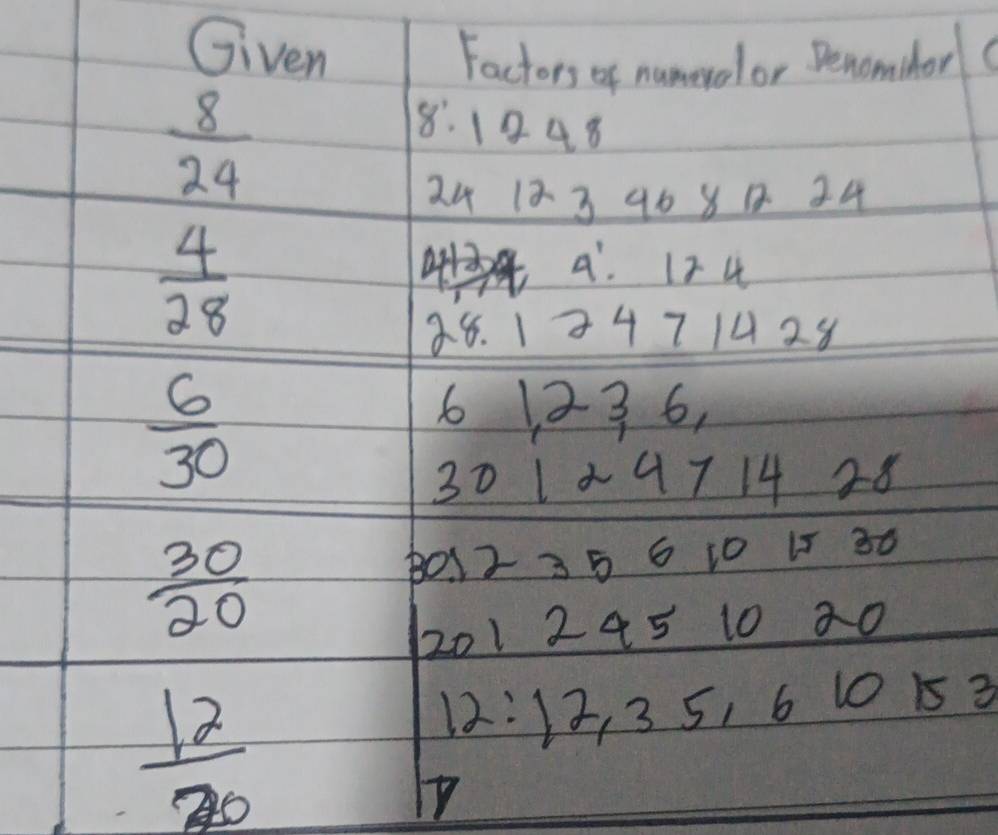 Given Factors of numerator Denominator
8 8: 1 2 4 8
24 24 12 3 4 6 8 12 24
4 4: 1 2 4
28 28. 1 2 4 7 14 28
6 6 1, 2 3, 6,
30 30 1 2 4 7 14 28
30 30: 1 2 3 5 6 10 15 30
20 20 1 2 4 5 10 20
12 12: 1 2, 3 5, 6 10 15 3
20